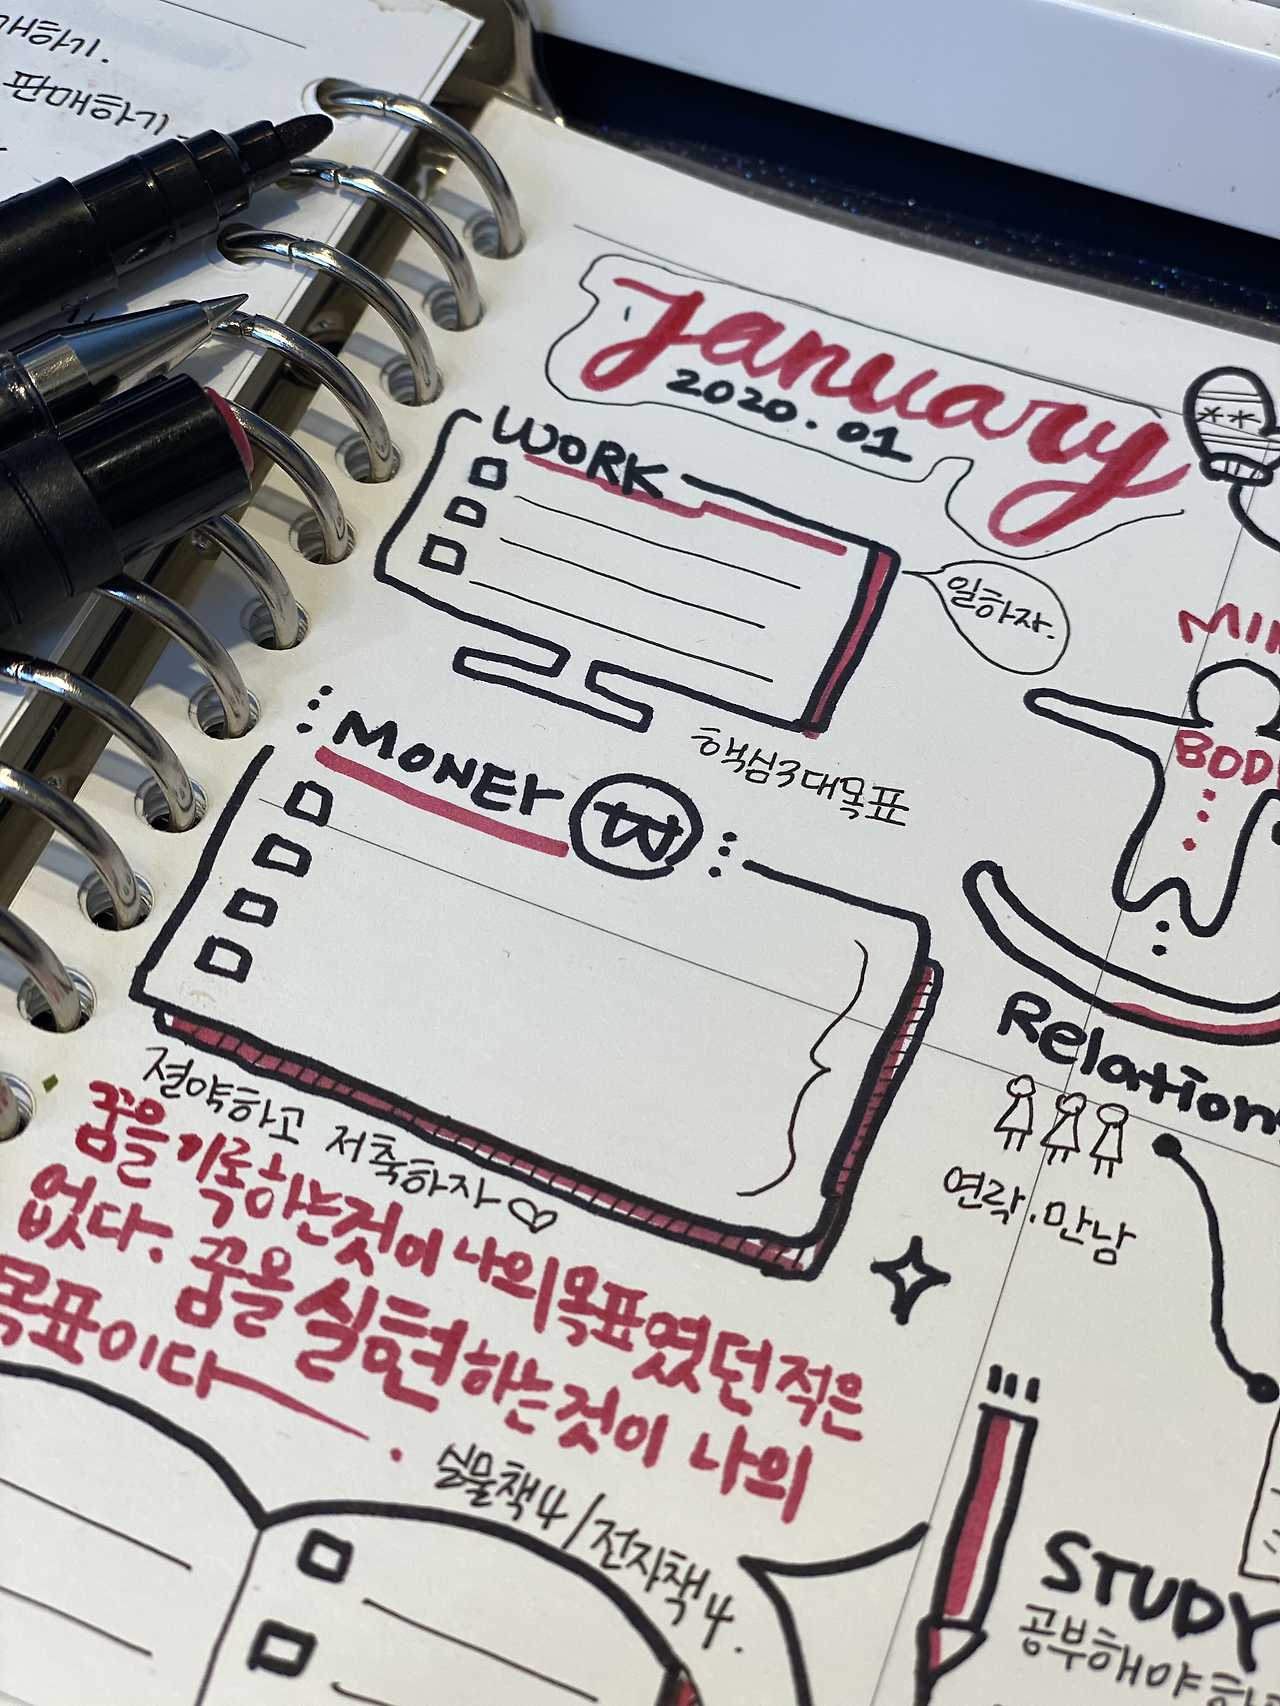 매하기.
판매하기
January
2020.01
WORK
일하자.
핵심3대목표
MONEY ₩
절약하고 저축하자♡
MIN
BODY
Relation
연락.만남
꿈을 기록하는것이 나의 목표였던 적은
없다. 꿈을 실현하는것이 나의
목표이다.
실물책4/전자책4.
STUDY
공부해야